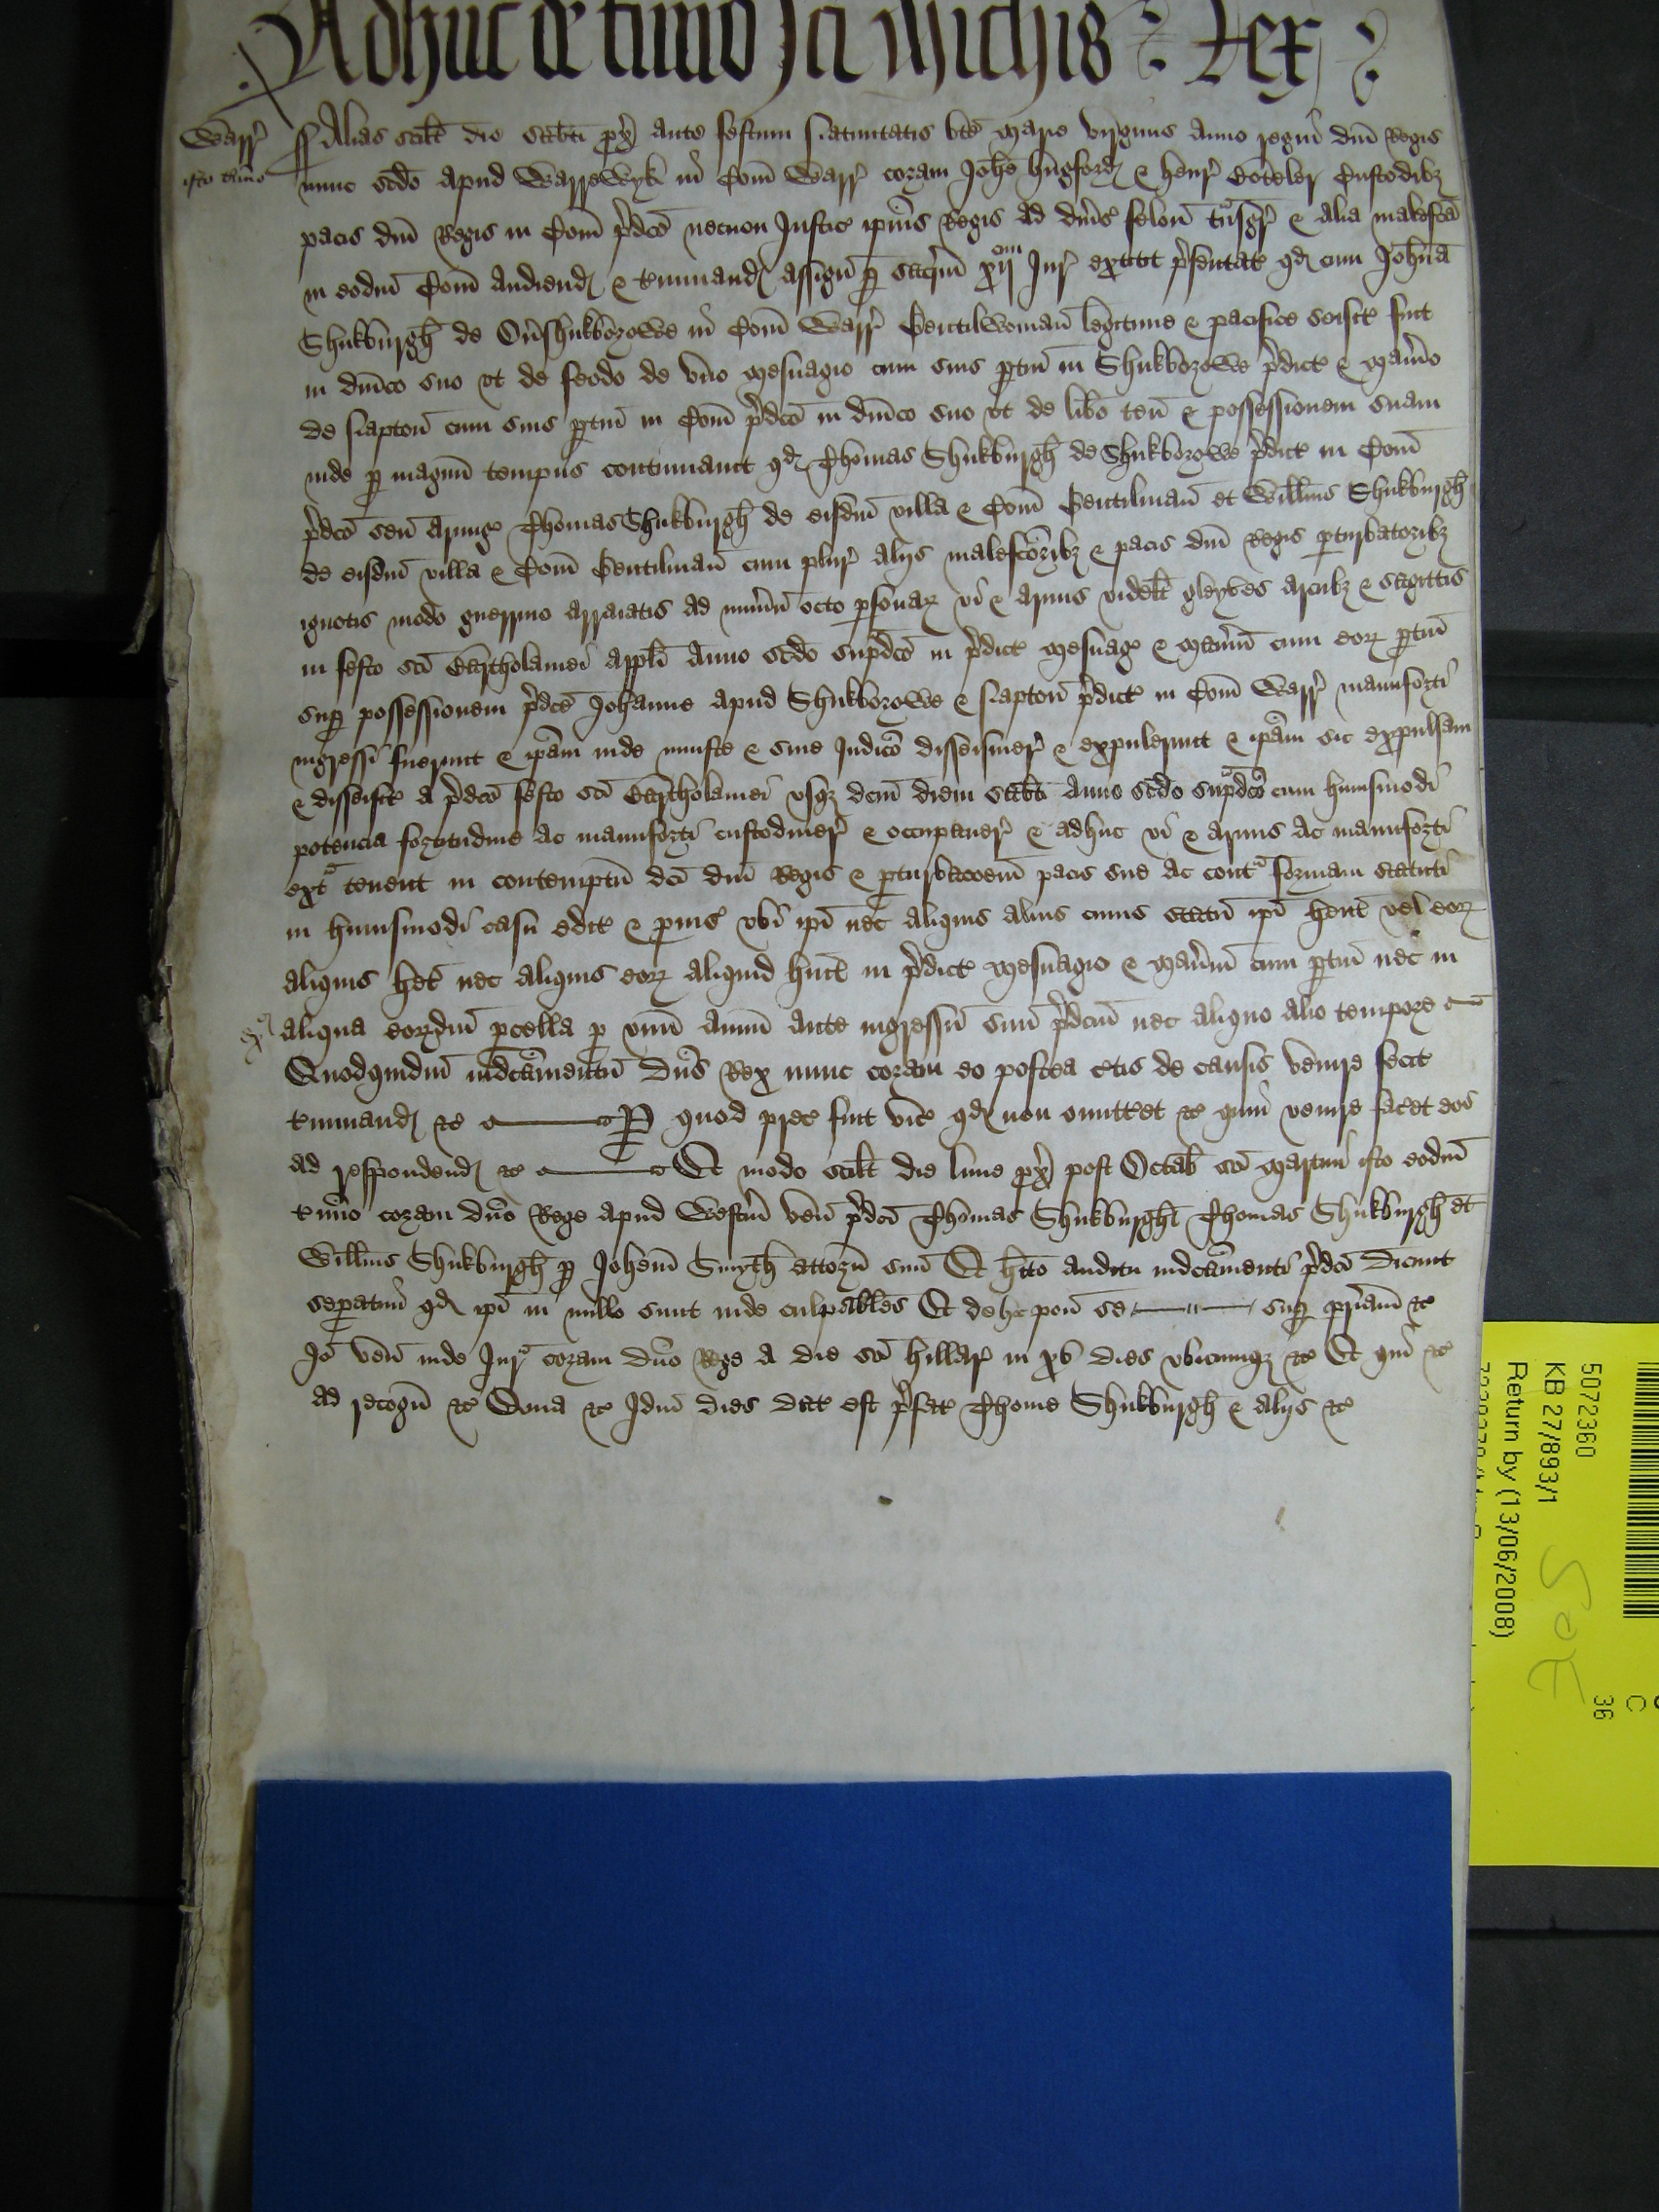 Adhuc de tmino sci Michis Rex
Warr̃ Alias scilt die Sabbti px̃ ante festum Natiuitatis bte Marie virginis Anno regni dni Regis
isto tmino nunc scdo apud Warrewyk in Com Warr̃ coram Johe Hugford & Henr̃ Boteler Custodibz
pacis dni Regis in Com p̃dco necnon Justic ipius Regis ad diũs felon tnsgr̃ & alia malefca
in eodm Com audiend & tminand assign p sacrm xij cim Jur̃ extitit p̃sentat qd cum Johna
Shukburgh de Oũshukborowe in Com Warr̃ Gentilwoman legitime & pacifice seisit fuit
in dnico suo vt de feodo de vno Mesuagio cum suis ptin in Shukborowe p̃dict & Manio
de Napton cum suis ptin in Com p̃dco in dnico suo vt de libo ten & possessionem suam
inde p magnu tempus continuauit qd Thomas Shukburgh de Shukborowe p̃dict in Com
p̃dco sen Armig Thomas Shukburgh de eisdm villa & Com Gentilman et Willms Shukburgh
de eisdm villa & Com Gentilman cum plur̃ alijs malefcoribz & pacis dni Regis pturbatoribz
ignotis modo guerrino arraiatis ad num̃u octo psonar vi & armis videlt gleyves arcubz & sagittis
in festo sci Bartholamei appli Anno scdo sup̃dco in p̃dict Mesuag & Maniu cum eor ptin
sup possessionem p̃dce Johanne apud Shukborowe & Napton p̃dict in Com Warr̃ manuforti
ingressi fuerunt & ipam inde iniuste & sine Judico disseisiuer̃ & expulerunt & ipam sic expulsam
& disseisit a p̃dco festo sci Bartholamei vsqz dcm diem Sabbti Anno scdo sup̃dco cum huiusmodi
potencia fortitudine ac manuforti custodiuer̃ & occupauer̃ & adhuc vi & armis ac manuforti
extã tenent in contemptu dci dni Regis & pturbacoem pacis sue ac contã formam statuti
in huiusmodi casu edit & puis vbi ipi nec aliquis alius cuius statu ipi hent vel eor
aliquis het nec aliquis eor aliquid huit in p̃dict Mesuagio & Manium cum ptin nec in
aliqua eordm pcella p vnu annu ante ingressu suu p̃dcm nec aliquo alio tempore
Quodquidm indcamentu Dns Rex nunc coram eo postea ctis de causis venire fecit
tminand &c P quod prec fuit vic qd non omittet &c quin venire facet eos
ad respondend &c Et modo scilt die lune px̃ post Octab sci Martini isto eodm
tmino coram dno Rege apud Westm ven p̃dci Thomas Shukburgh Thomas Shukburgh et
Willms Shukburgh p Johem Smyth attorn suu Et hito auditu indcamenti p̃dci dicunt
sepatim qd ipi in nullo sunt inde culpabiles Et de hoc pon se sup pr̃iam &c
Jo ven inde Jur̃ coram dno Rege a die sci Hillar in xv dies vbicumqz &c Et qui &c
ad recogn &c Quia &c Idm dies dat est p̃fat Thome Shukburgh & alijs &c
5072360
KB 27/893/1
Return by (13/06/2008)
36
C